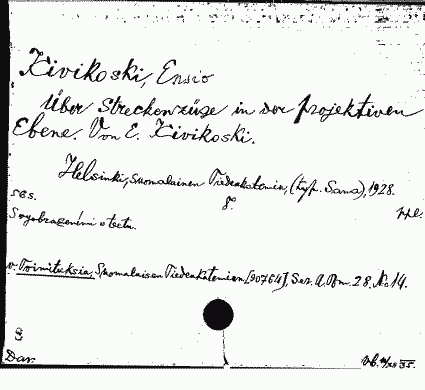 Kivikoski, Ensio
Über Streckenzüge in der projektiven
Ebene. Von E. Kivikoski.
Helsinki, Suomalainen Tiedeakatemia, (typ. Sana), 1928.
8.
S vyobrazeními v textu.
v. Toimituksia, Suomalaisen Tiedeakatemian [90764], Sar. A. Bm. 28. No 14.
8
Dar.